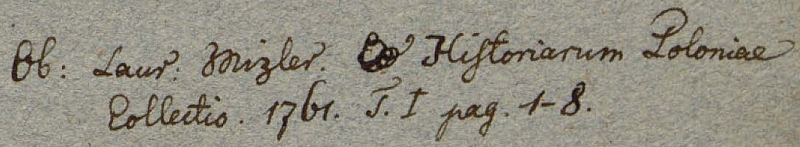 Ob: Laur: Mizler. Historiarum Poloniae
Collectio. 1761. T. I pag. 1-8.